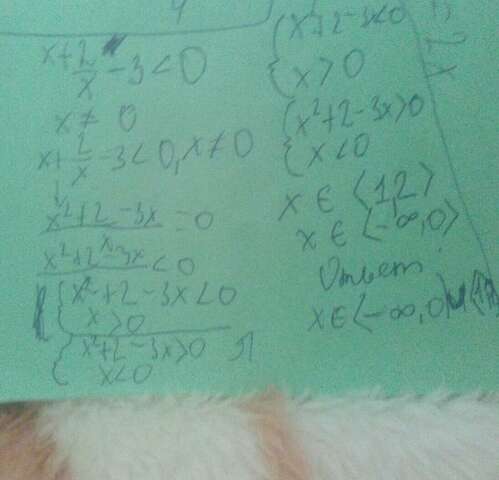 x + 2/x - 3 < 0
x ≠ 0
x + 2/x - 3 < 0, x ≠ 0
x² + 2 - 3x / x = 0
x² + 2 - 3x / x < 0
{ x² + 2 - 3x < 0
x > 0
{ x² + 2 - 3x > 0
x < 0
{ x² + 2 - 3x < 0
x > 0
{ x² + 2 - 3x > 0
x < 0
x ∈ ⟨1,2⟩
x ∈ ⟨-∞,0⟩
Ответ:
x ∈ ⟨-∞,0⟩ u ⟨1,